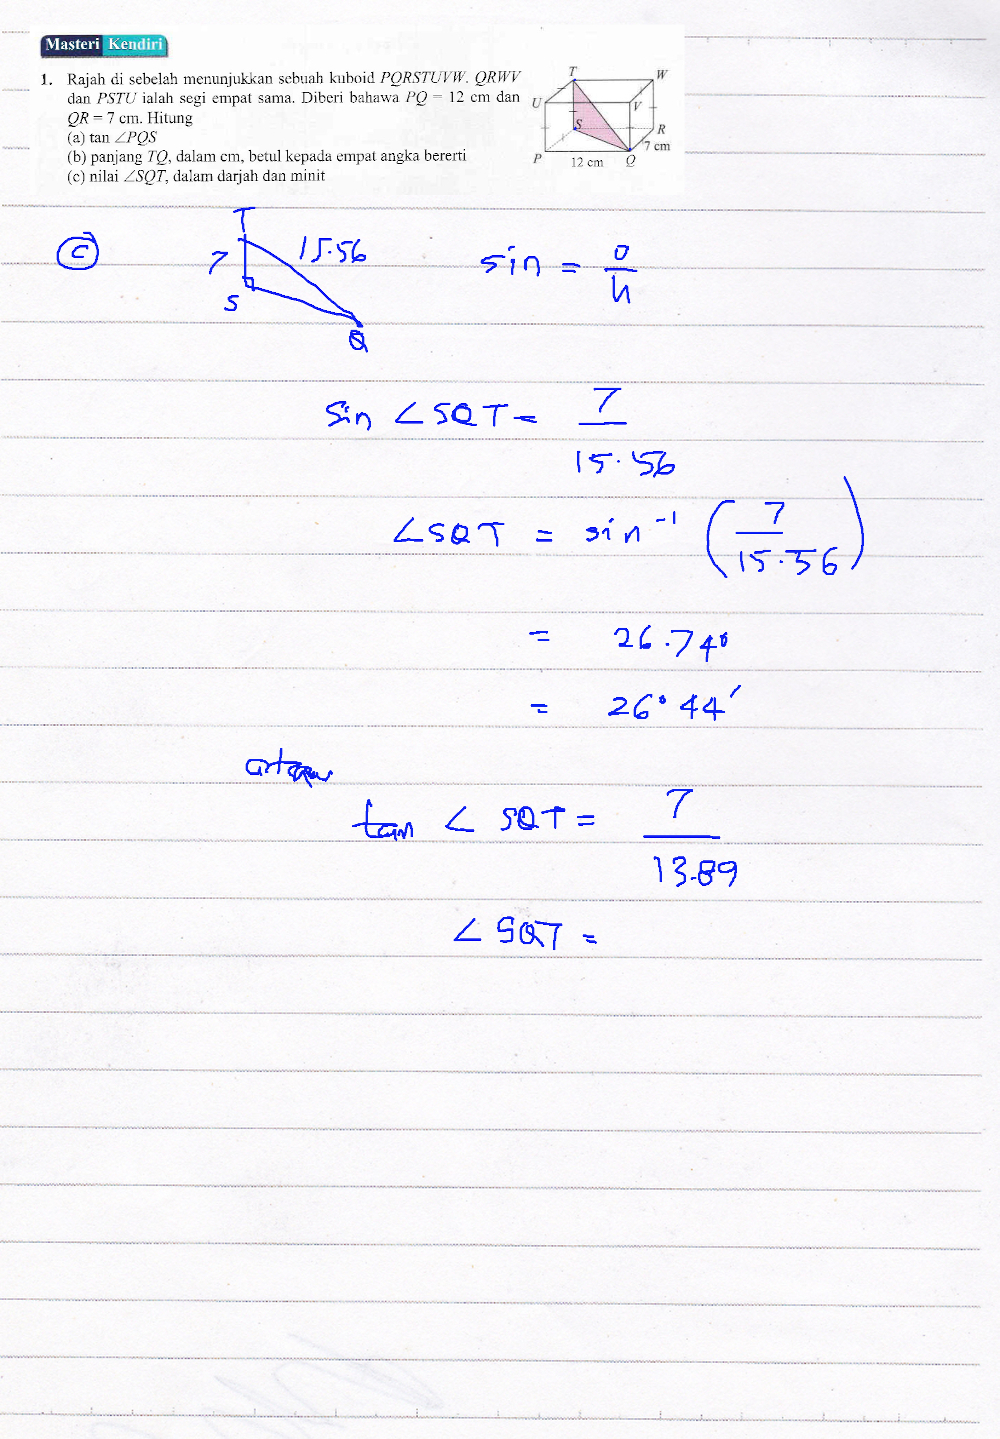 Masteri Kendiri
1. Rajah di sebelah menunjukkan sebuah kuboid PQRSTUVW. QRWV
dan PSTU ialah segi empat sama. Diberi bahawa PQ = 12 cm dan
QR = 7 cm. Hitung
(a) tan ∠PQS
(b) panjang TQ, dalam cm, betul kepada empat angka bererti
(c) nilai ∠SQT, dalam darjah dan minit
T
W
U
V
S
R
7 cm
P
12 cm
Q
c
T
7
15.56
S
Q
sin = o/h
sin ∠SQT = 7/15.56
∠SQT = sin⁻¹ (7/15.56)
= 26.74°
= 26°44′
tan ∠SQT = 7/13.89
∠SQT =